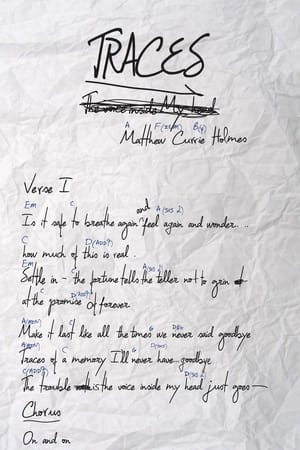 TRACES
The voice inside My head
A F(#11/M) B(4)
Matthew Currie Holmes
Verse I
Em C and A(sus 2)
Is it safe to breathe again feel again and wonder...
C D(ADD9)
how much of this is real.
Em A(sus 2)
Settle in - the fortune tells the teller not to grin
C D(ADD9)
at the promise of forever.
C G
Make it last like all the times we never said goodbye
C G D(sus)
Traces of a memory I'll never have... goodbye
C(ADD9) G D(ADD9)
The trouble is the voice inside my head just goes—
Chorus
On and on